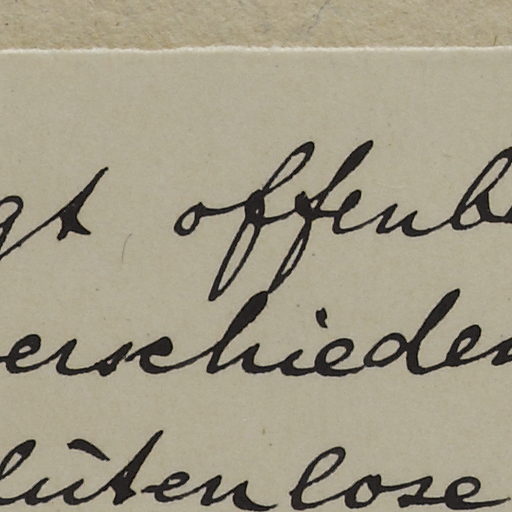 gt offenb
erschieden
lütenlose